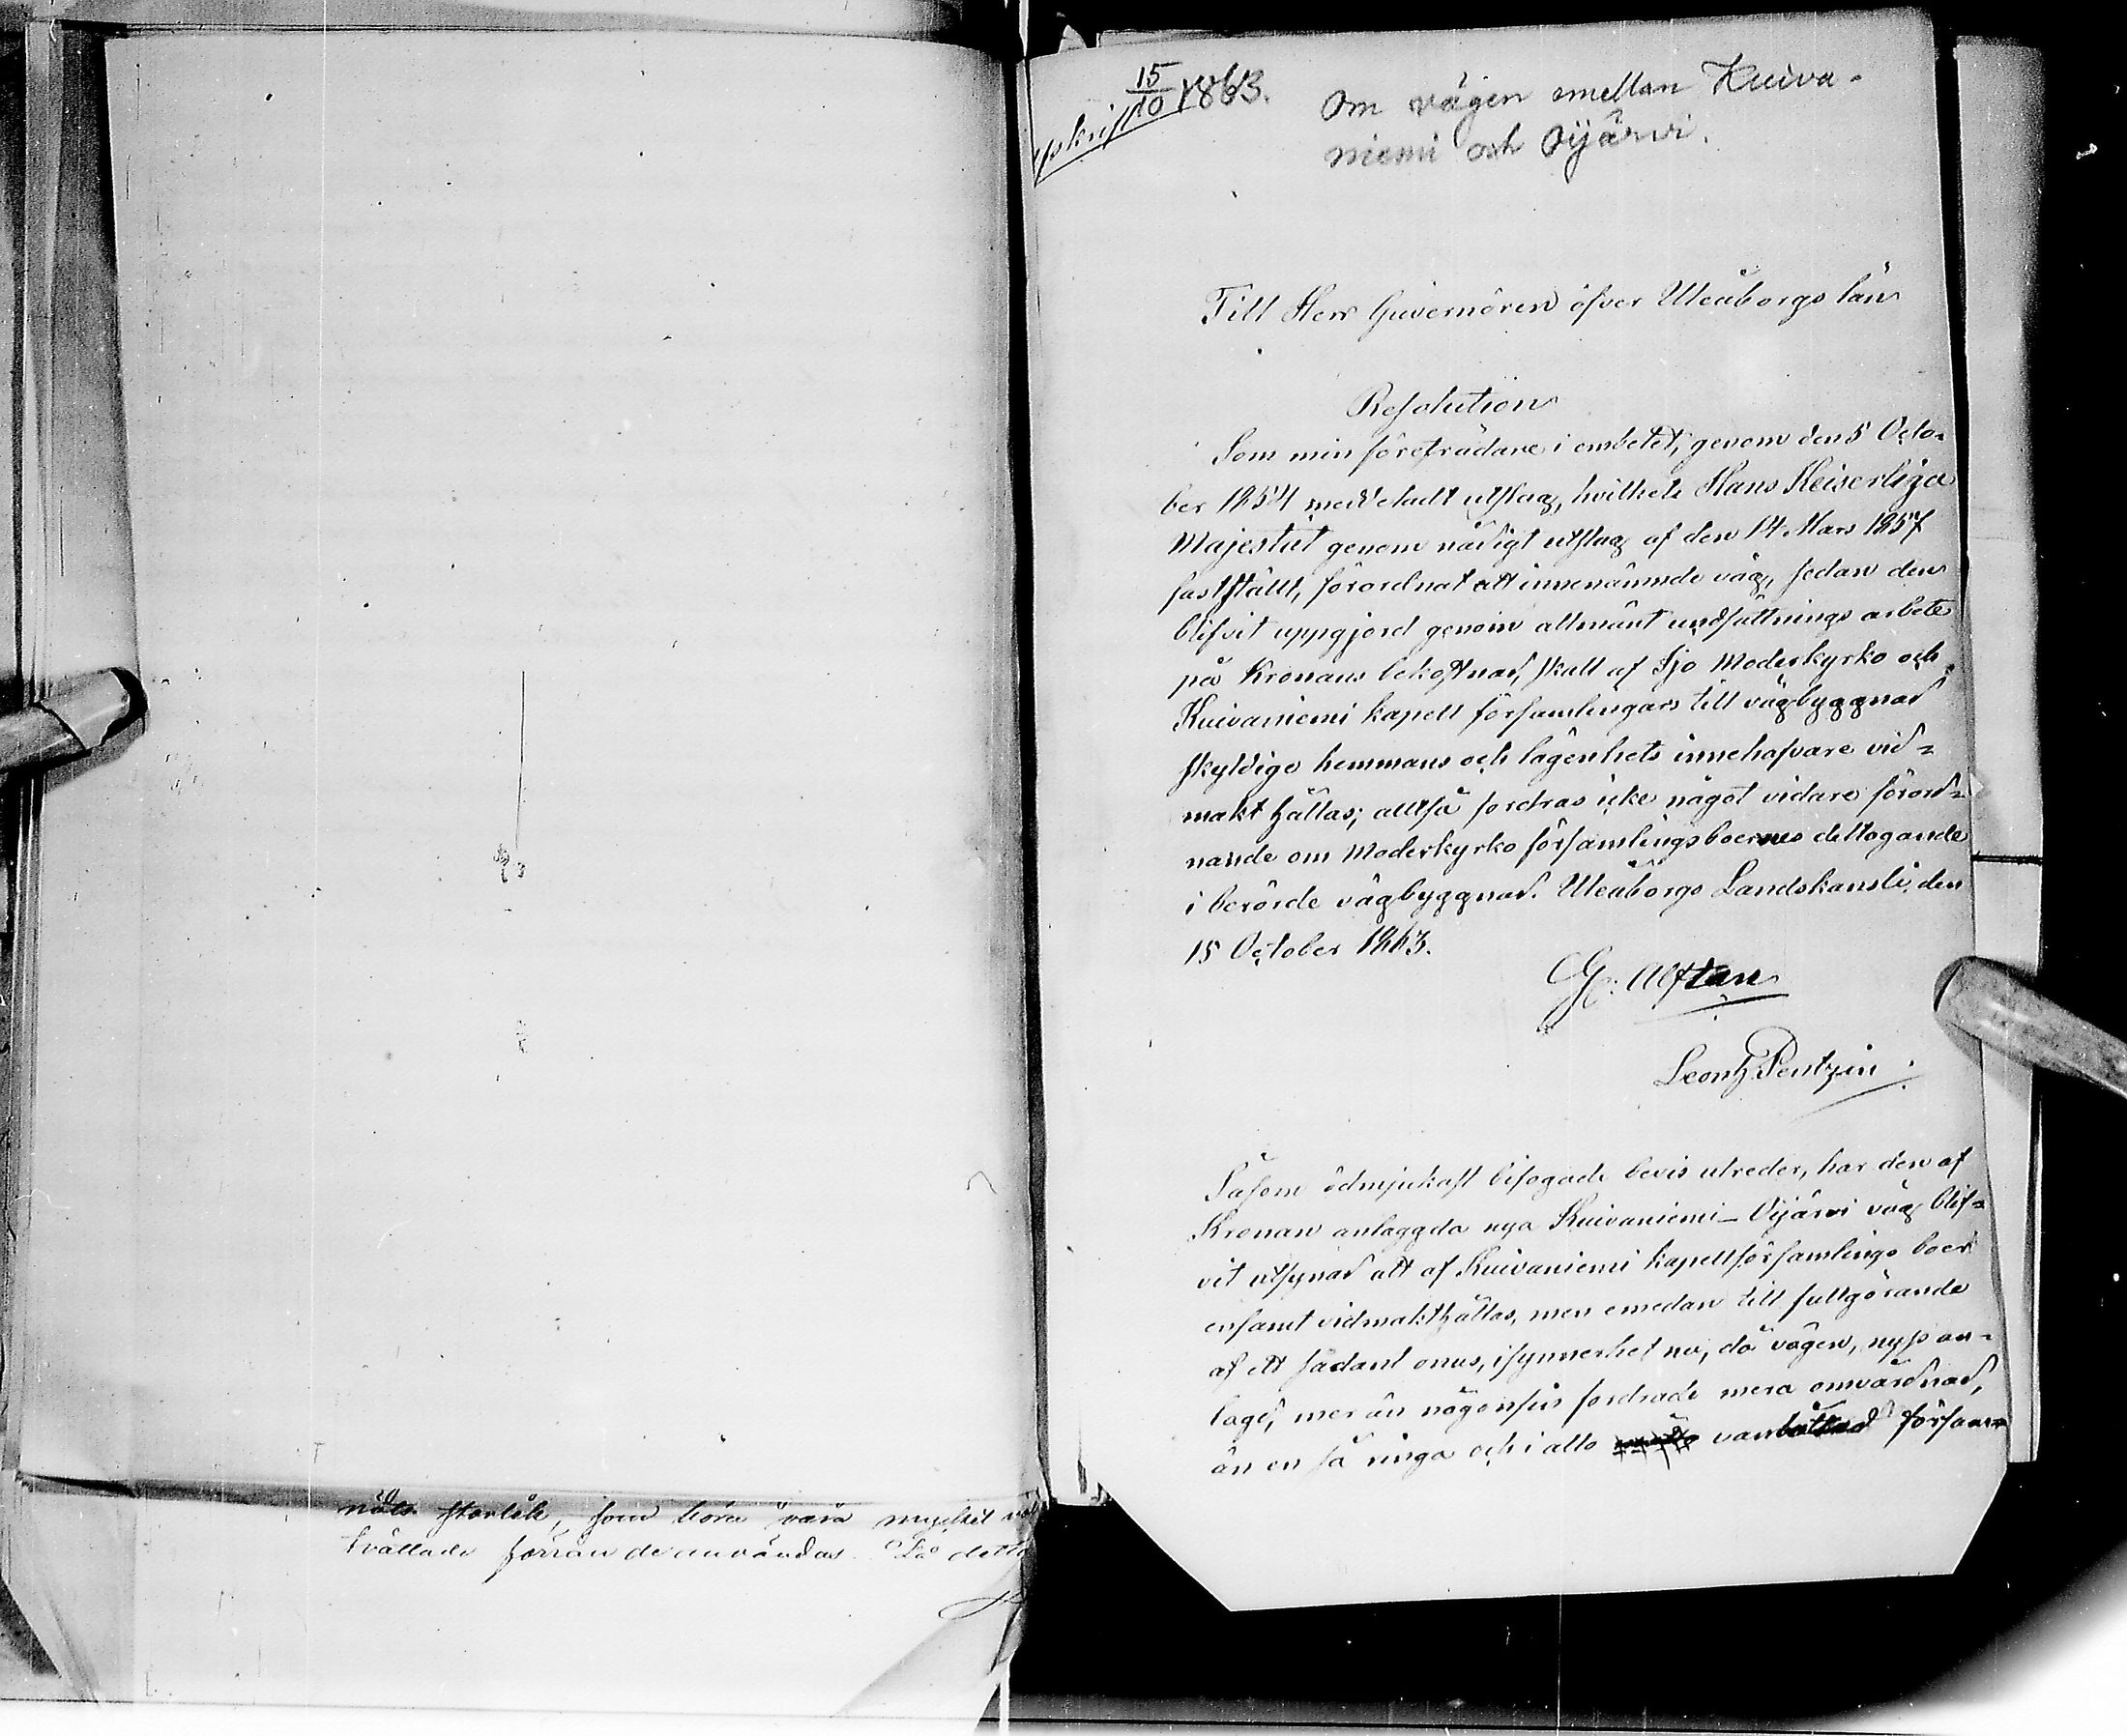 15/10 1863.
Om vägen emellan Kuiva-
niemi och Oijärvi.
Till Herr Guvernören öfver Uleåborgs län
Resolution
Som min företrädare i embetet, genom den 5 Octo-
ber 1854 meddeladt utslag, hvilket Hans Keiserliga
Majestät genom nådigt utslag af den 14 Mars 1857
fastställt, förordnat att innenämnde väg, sedan den
blifvit uppgjord genom allmänt undsättnings arbete
på Kronans bekostnad, skall af Ijo Moderkyrko och
Kuivaniemi kapell församlingars till vägbyggnad
skyldige hemmans och lägenhets innehafvare vid-
makt hållas; alltså fordras icke något vidare förord-
nande om Moderkyrko församlingsboernes deltagande
i berörde vägbyggnad. Uleåborgs Landskansli, den
15 October 1863.
G: Alftan
Leonh Pentzin
Såsom ödmjukast bifogade bevis utreder, har den af
Kronan anlaggda nya Kuivaniemi-Oijärvi väg blif-
vit utsynad att af Kuivaniemi kapellförsamlings boer
ensamt vidmakthållas, men emedan till fullgörande
af ett sådant onus, isynnerhet nu, då vägen, nyss an-
lagd, mer än någonsin fordrade mera omvårdnad,
än en så ringa och i allo vanlottad försam-
storlek, som böra vara mycket
tvällade förrän de användas. Då detta